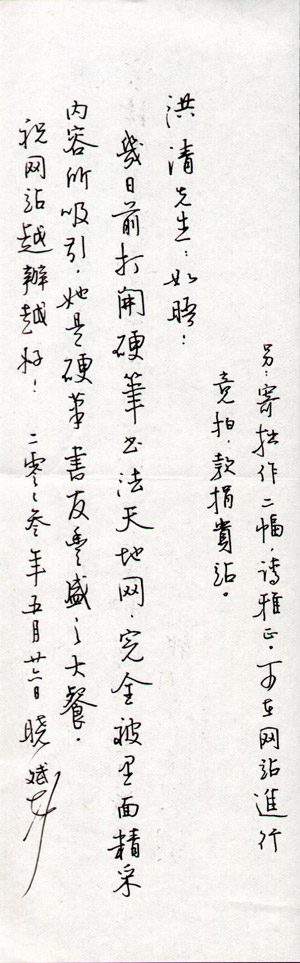 洪清先生：如晤！
幾日前打開硬筆书法天地网，完全被里面精采
内容所吸引，她是硬筆書友豐盛之大餐。
祝网站越辦越好！ 二零零叁年五月廿六日 晓斌
另：寄拙作二幅，请雅正。可在网站進行
竞拍，款捐貴站。